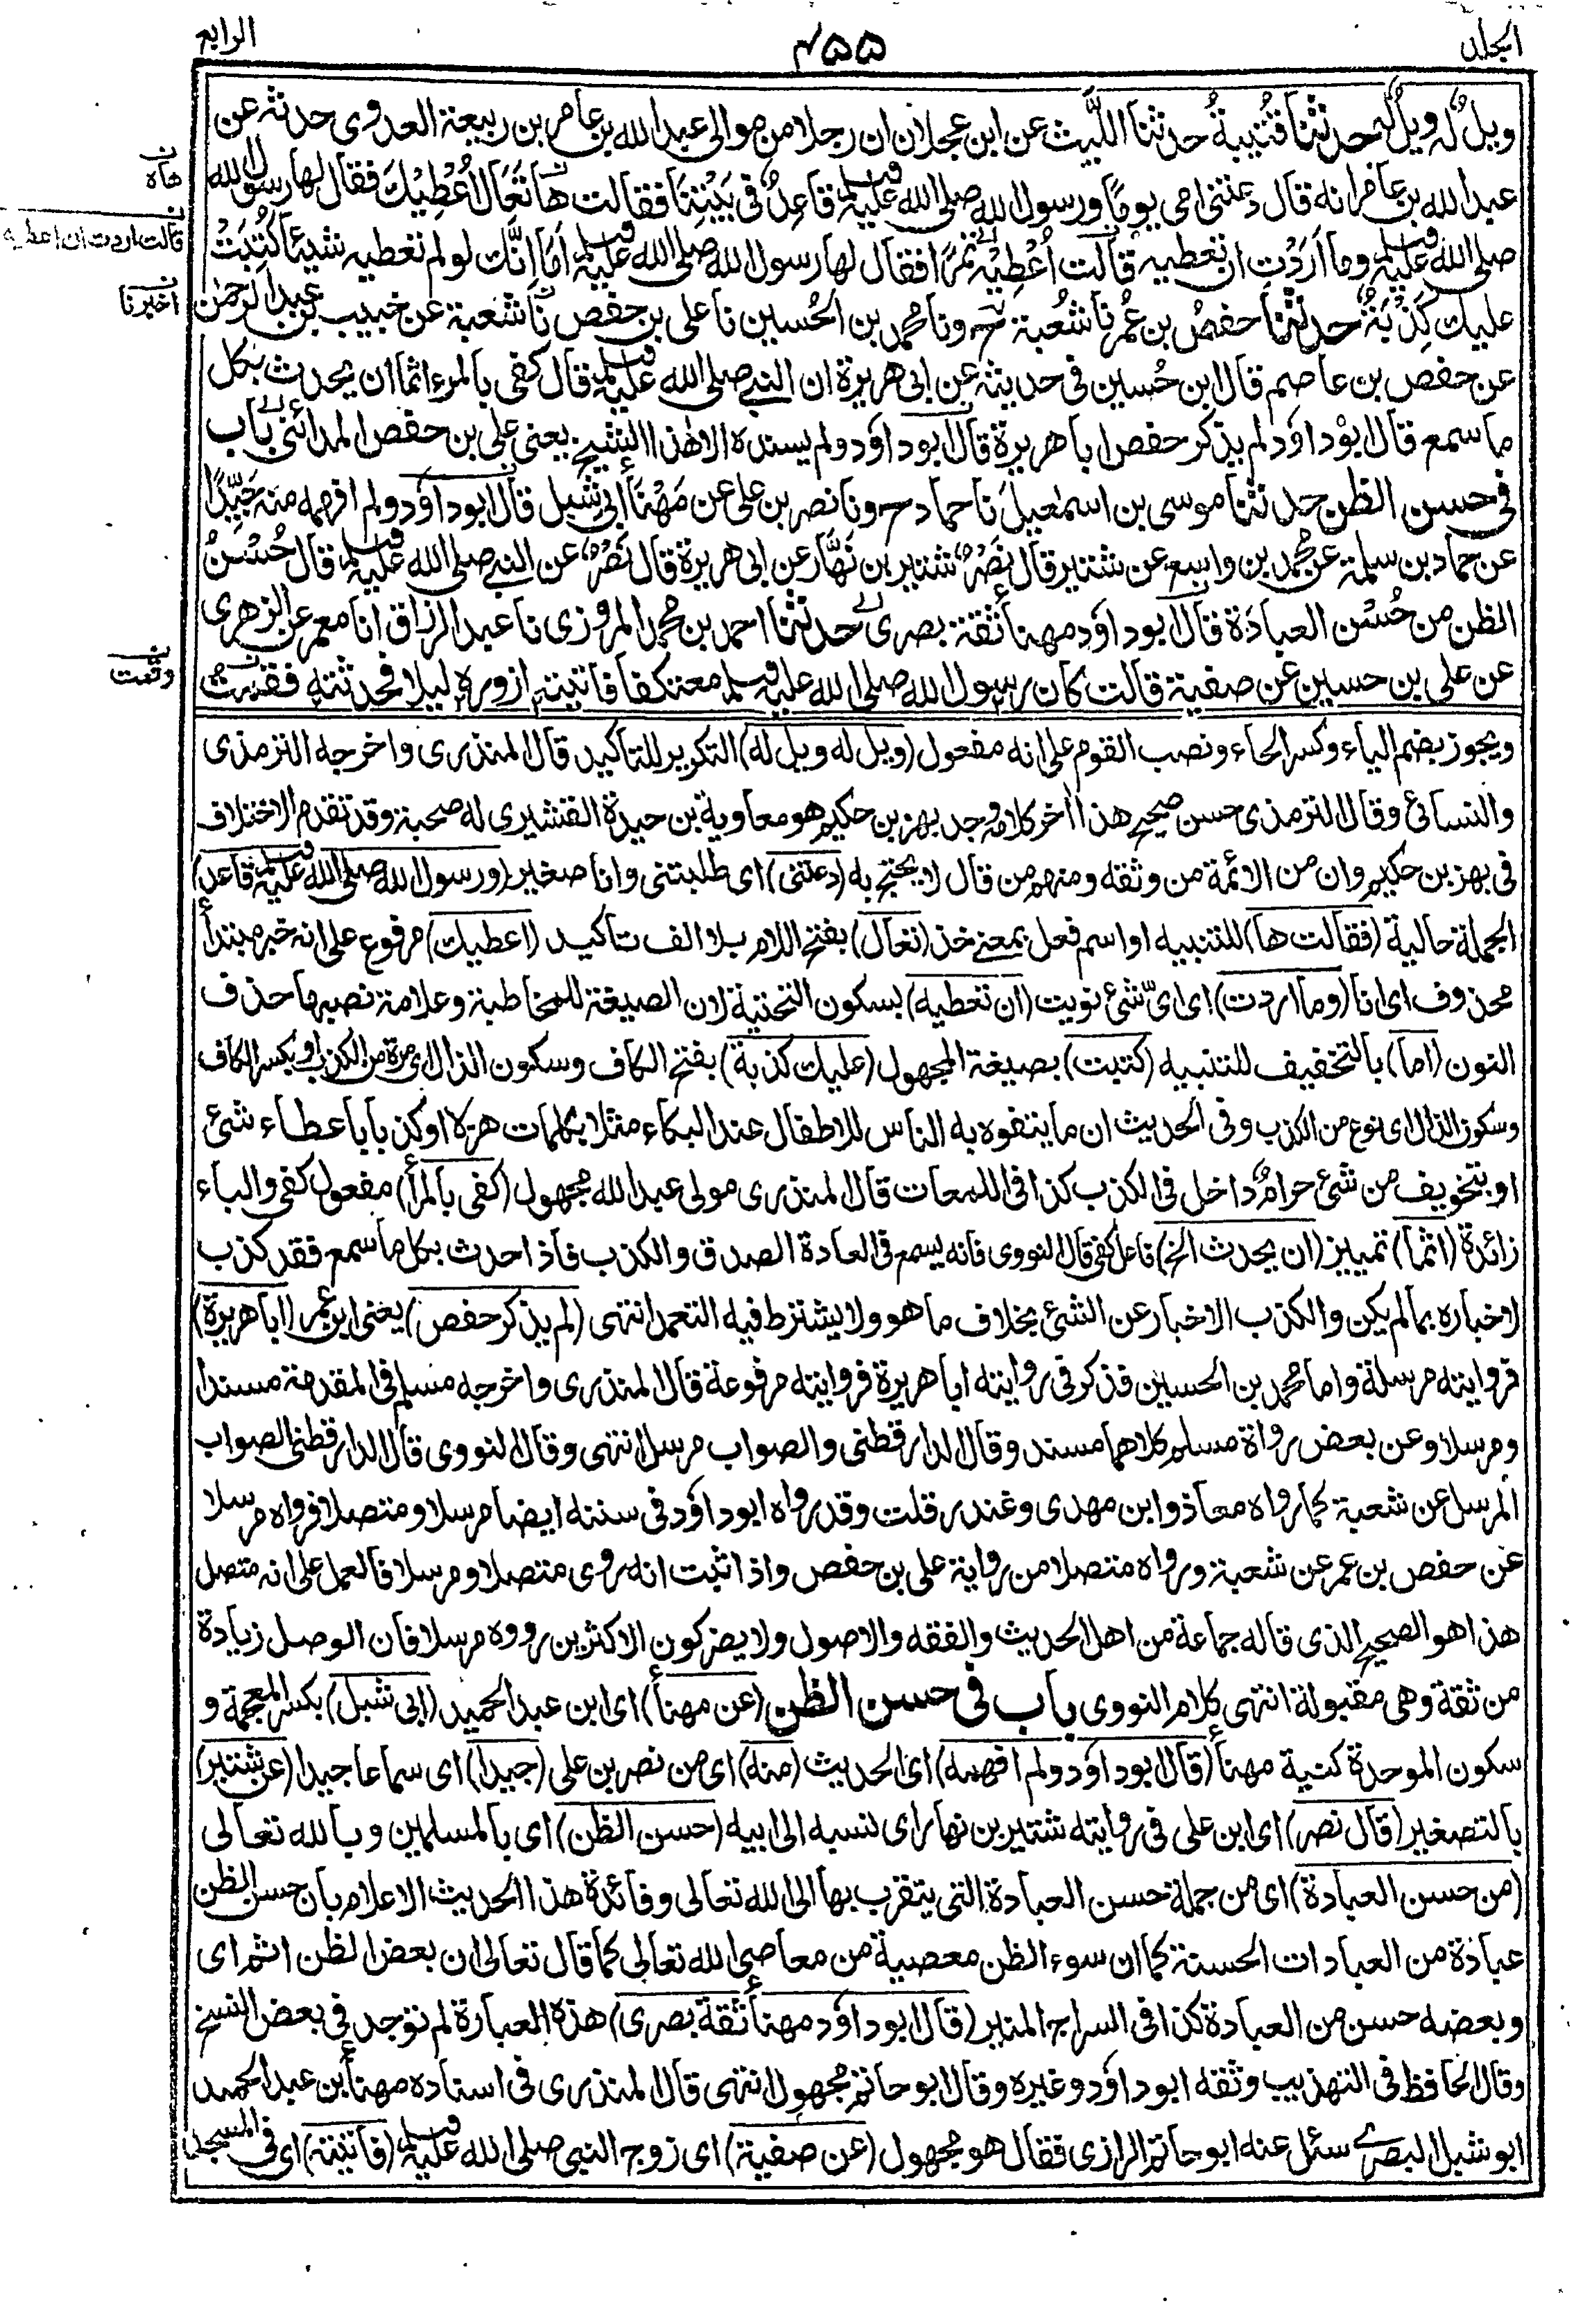 المجلد
۴۵۵
الرابع
ويلٌ له ويلٌ له حدثنا قُتَيبةُ حدثنا اللَّيث عن ابن عجلان ان رجلا من موالى عبد الله بن عامر بن ربيعة العدوى حدثه عن
عبد الله بن عامر انه قال دعتنى امى يومًا ورسول الله صلى الله عليه وسلم قاعدٌ فى بَيْتِنَا فقالت هَا تَعَالَ اُعْطِيْكَ فقال لها رسول الله
صلى الله عليه وسلم وما اَرَدْتِ ان تعطيه قالت اُعْطِيْهِ تمرًا فقال لها رسول الله صلى الله عليه وسلم اَمَا اِنَّكِ لو لم تعطيه شيئًا كُتِبَتْ
عليك كَِذْبَةٌ حدثنا حفصُ بن عُمر نا شُعبة ح ونا محمد بن الحُسين نا على بن حفص نا شعبة عن خبيب بن عبد الرحمٰن
عن حفص بن عاصم قال ابن حُسين فى حديثه عن ابى هريرة ان النبى صلى الله عليه وسلم قال كفى بالمرء اثما ان يحدث بكل
ما سمع قال ابو داود لم يذكر حفص ابا هريرة قال ابو داود ولم يسنده الا هذا الشيخ يعنى على بن حفص المدائنى باب
فى حسن الظن حدثنا موسى بن اسمٰعيل نا حماد ح ونا نصر بن على عن مُهَنَّأ ابى شبل قال ابو داود ولم افهمه منه جَيِّدًا
عن حماد بن سلمة عن محمد بن واسع عن شتير قال نصْرٌ شتير بن نَهَّار عن ابى هريرة قال نَصْرٌ عن النبى صلى الله عليه وسلم قال حُسْنُ
الظن من حُسْن العبادَة قال ابو داود مهنأ ثقة بصرى حدثنا احمد بن محمد المروزى نا عبد الرزاق انا معمر عن الزهرى
عن على بن حسين عن صفية قالت كان رسول الله صلى الله عليه وسلم معتكفا فاتيته ازوره ليلا فحدثته فقمت
هاه
قالت اردت ان اعطيه
اخبرنا
وقمت
ويجوز بضم الياء وكسر الحاء ونصب القوم على انه مفعول (ويل له ويل له) التكرير للتاكيد قال المنذرى واخرجه الترمذى
والنسائى وقال الترمذى حسن صحيح هذا اٰخر كلامه وجد بهز بن حكيم هو معاوية بن حيدة القشيرى له صحبة وقد تقدم الاختلاف
فى بهز بن حكيم وان من الائمة من وثقه ومنهم من قال لا يحتج به (دعتنى) اى طلبتنى وانا صغير (ورسول الله صلى الله عليه وسلم قاعد)
الجملة حالية (فقالت ها) للتنبيه او اسم فعل بمعنى خذ (تعال) بفتح اللام بلا الف تاكيد (اعطيك) مرفوع على انه خبر مبتدأ
محذوف اى انا (وما اردت) اى اىّ شئ نويت (ان تعطيه) بسكون التحتية لان الصيغة للمخاطبة وعلامة نصبها حذف
النون (اما) بالتخفيف للتنبيه (كتبت) بصيغة المجهول (عليك كذبة) بفتح الكاف وسكون الذال اى مرة من الكذب او بكسر الكاف
وسكون الذال اى نوع من الكذب وفى الحديث ان ما يتفوه به الناس للاطفال عند البكاء مثلا بكلمات هزلا او كذبا باعطاء شئ
او بتخويف من شئ حرامٌ داخل فى الكذب كذا فى اللمعات قال المنذرى مولى عبد الله مجهول (كفى بالمرأ) مفعول كفى والباء
زائدة (اثما) تمييز (ان يحدث الخ) فاعل كفى قال النووى فانه يسمع فى العادة الصدق والكذب فاذا حدث بكل ما سمع فقد كذب
لاخباره بما لم يكن والكذب الاخبار عن الشئ بخلاف ما هو ولا يشترط فيه التعمد انتهى (لم يذكر حفص) يعنى ابن عمر (ابا هريرة)
فروايته مرسلة واما محمد بن الحسين فذكر فى روايته ابا هريرة فروايته مرفوعة قال المنذرى واخرجه مسلم فى المقدمة مسندا
ومرسلا وعن بعض رواة مسلم كلاهما مسند وقال الدارقطنى والصواب مرسل انتهى وقال النووى قال الدارقطنى الصواب
المرسل عن شعبة كما رواه معاذ وابن مهدى وغندر قلت وقد رواه ابو داود فى سننه ايضا مرسلا ومتصلا فرواه مرسلا
عن حفص بن عمر عن شعبة ورواه متصلا من رواية على بن حفص واذا ثبت انه روى متصلا ومرسلا فالعمل على انه متصل
هذا هو الصحيح الذى قاله جماعة من اهل الحديث والفقه والاصول ولا يضر كون الاكثرين رووه مرسلا فان الوصل زيادة
من ثقة وهى مقبولة انتهى كلام النووى باب فى حسن الظن (عن مهنأ) اى ابن عبد الحميد (ابى شبل) بكسر المعجمة و
سكون الموحدة كنية مهنأ (قال ابو داود ولم افهمه) اى الحديث (منه) اى من نصر بن على (جيدا) اى سماعا جيدا (عن شتير)
بالتصغير (قال نصر) اى ابن على فى روايته شتير بن نهار اى نسبه الى ابيه (حسن الظن) اى بالمسلمين وبالله تعالى
(من حسن العبادة) اى من جملة حسن العبادة التى يتقرب بها الى الله تعالى وفائدة هذا الحديث الاعلام بان حسن الظن
عبادة من العبادات الحسنة كما ان سوء الظن معصية من معاصى الله تعالى كما قال تعالى ان بعض الظن اثم اى
وبعضه حسن من العبادة كذا فى السراج المنير (قال ابو داود مهنأ ثقة بصرى) هذه العبارة لم توجد فى بعض النسخ
وقال الحافظ فى التهذيب وثقه ابو داود وغيره وقال ابو حاتم مجهول انتهى قال المنذرى فى اسناده مهنأ بن عبد الحميد
ابو شبل البصرى سئل عنه ابو حاتم الرازى فقال هو مجهول (عن صفية) اى زوج النبى صلى الله عليه وسلم (فاتيته) اى فى المسجد